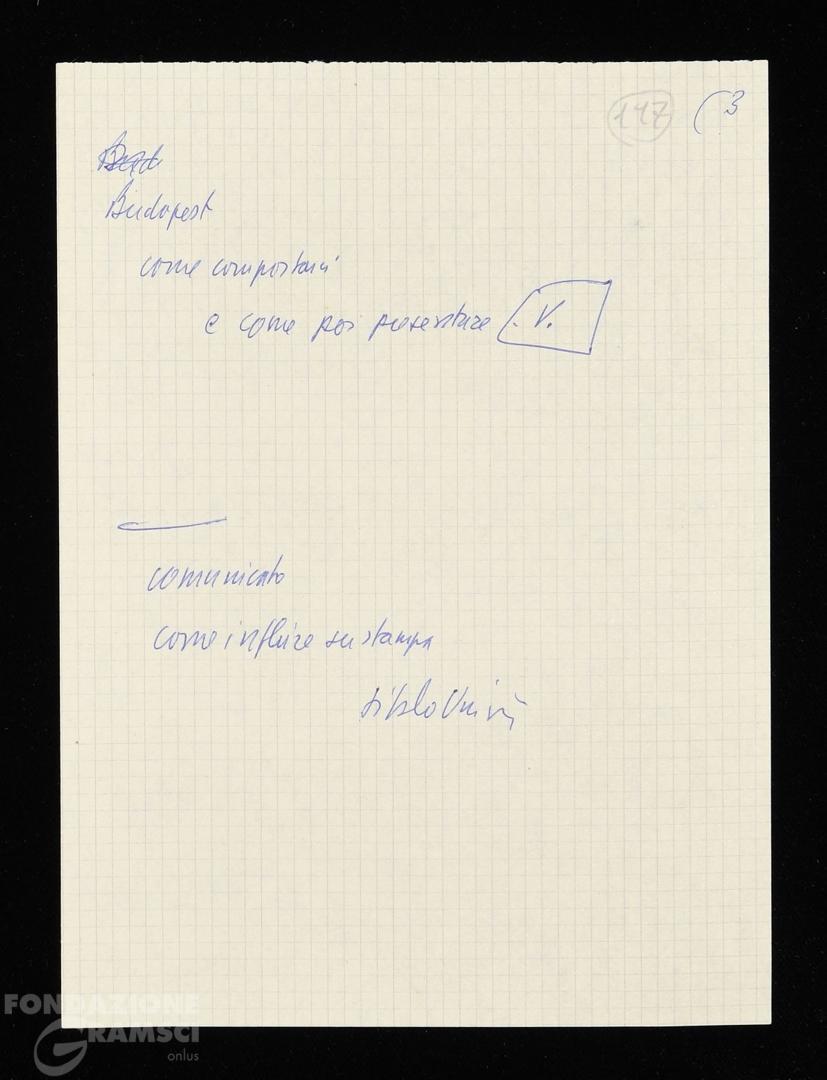 147 (3
Budapest
come comportarci
e come poi presentare .V.
comunicato
come influire su stampa
titolo Unità
FONDAZIONE
GRAMSCI
onlus